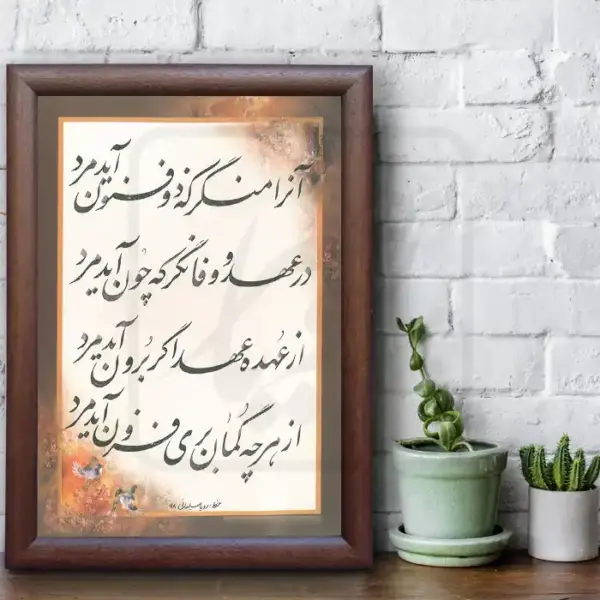 آنرا منگر که ذوفنون آید مرد
در عهد و وفا نگر که چون آید مرد
از عهده عهد اگر برون آید مرد
از هر چه گمان بری فزون آید مرد